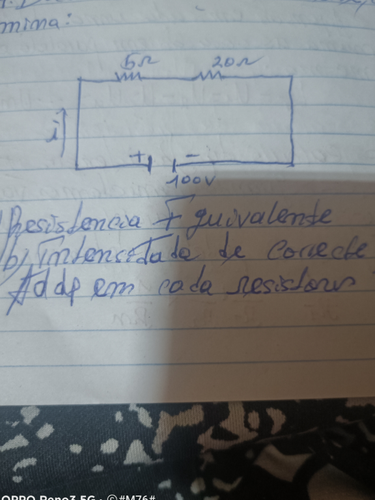 mina:
5Ω 20Ω
i
+ -
100V
Resistencia Equivalente
b) Intensidade de Correcte
Addp em cada resistour
OPPO Reno3 5G · ©#M76#